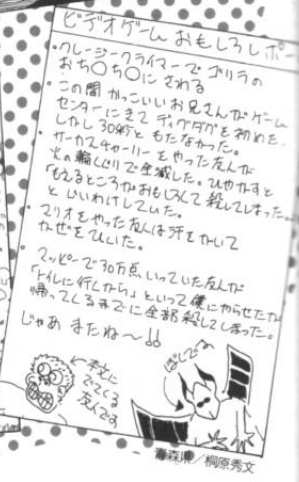 ビデオゲーム おもしろレポー
・クレージークライマーでゴリラの
おち〇ち〇にさわる
・この間 かっこいいお兄さんがゲーム
センターにきてディグダグを初めた。
しかし30秒ともたなかった。
・サーカスチャーリーをやった友人が
火の輪くぐりで全滅した。ひやかすと
「もえるところがおもしろくて殺してしまった」
といいわけしていた。
・マリオをやった友人は汗をかいて
かぜをひいた。
・マッピーで30万点いっていた友人が
「トイレに行くから」といって僕にやらせたが
帰ってくるまでに全部殺してしまった。
じゃあ またね〜!!
本文に
でてくる
友人です
青森県/桐原秀文